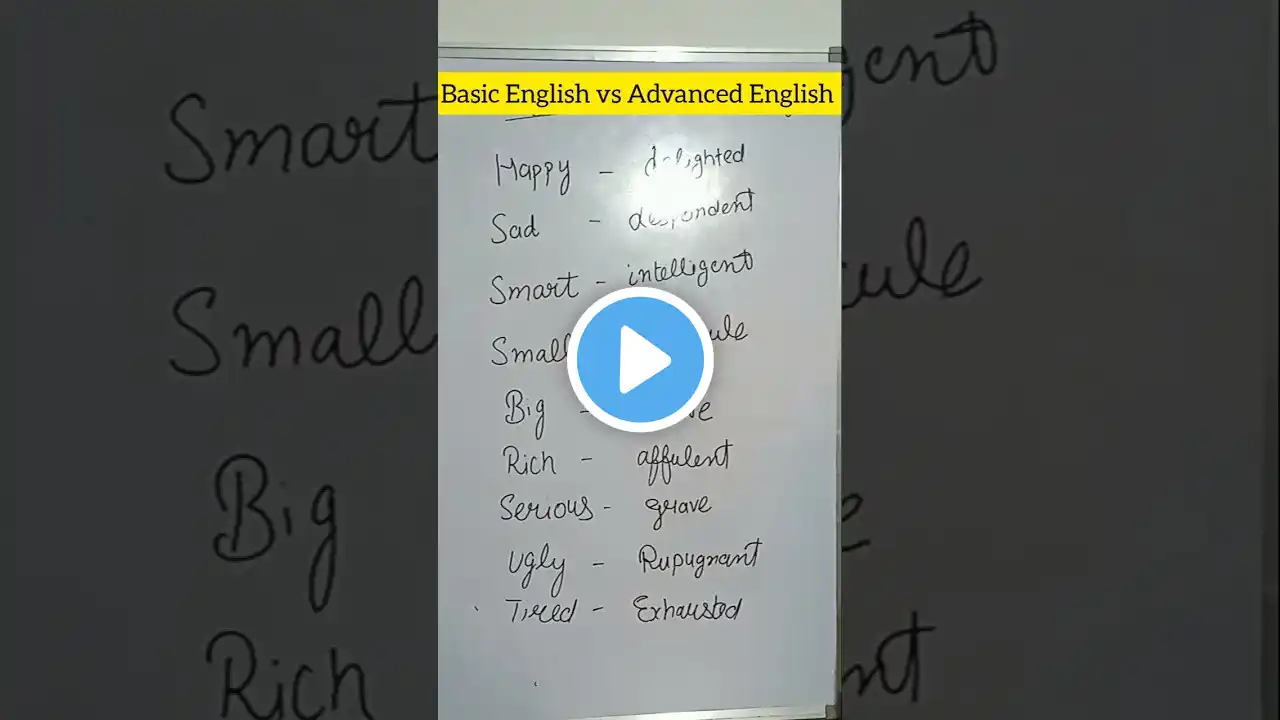 Basic English vs Advanced English
Happy - delighted
Sad - despondent
Smart - intelligent
Small
Big -
Rich - affulent
Serious - grave
Ugly - Rupugnant
Tired - Exhausted